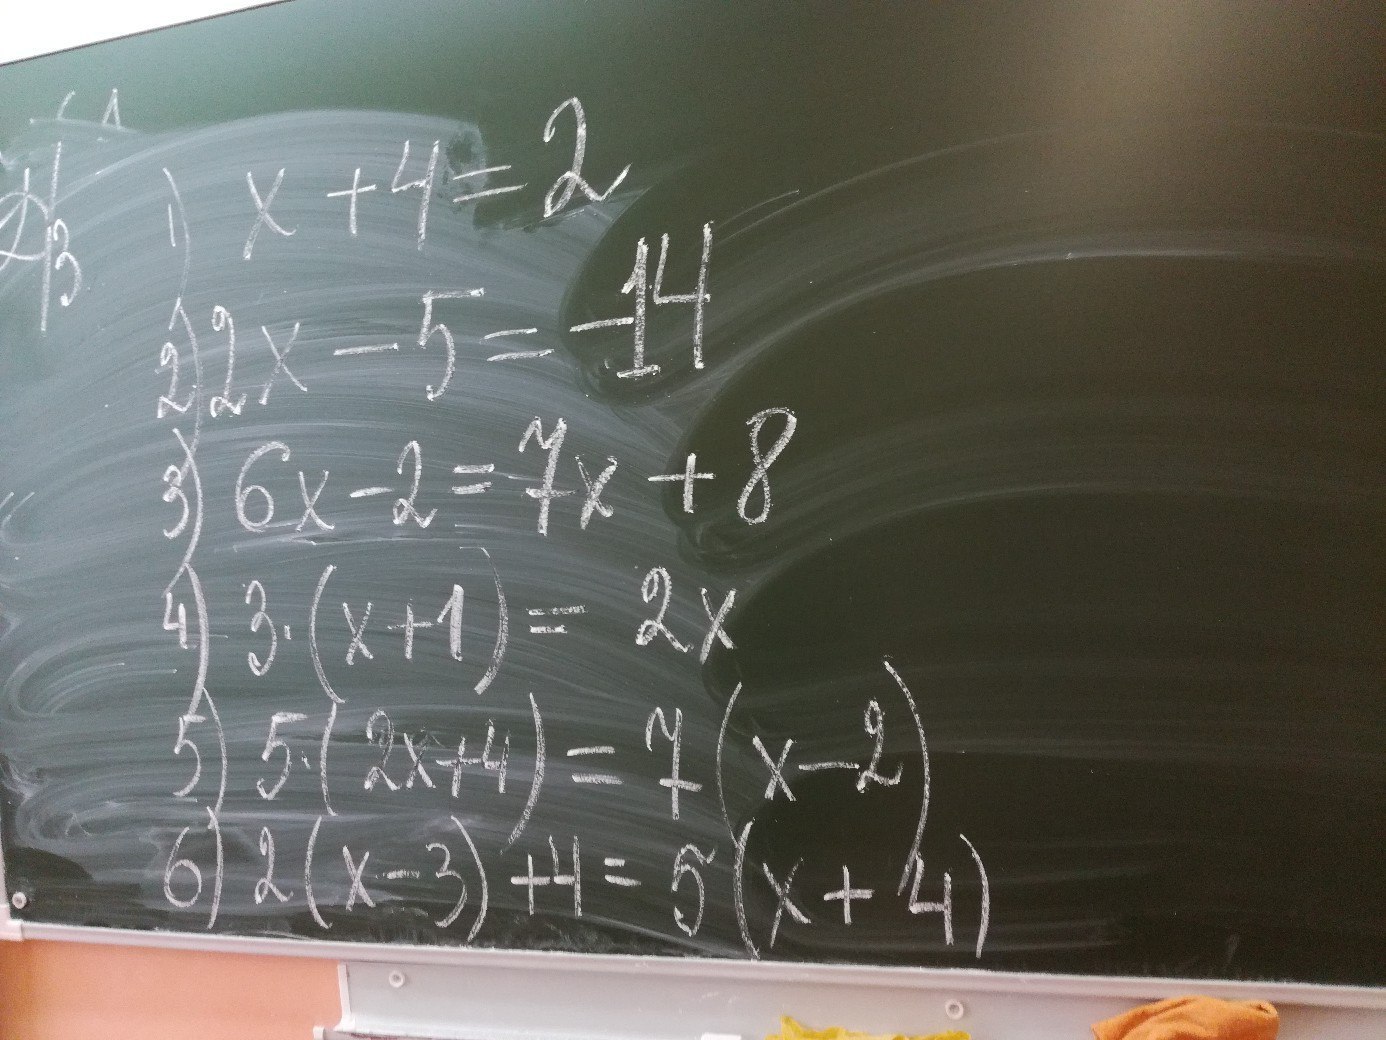 1) x + 4 = 2
2) 2x - 5 = -14
3) 6x - 2 = 7x + 8
4) 3·(x+1) = 2x
5) 5·(2x+4) = 7(x-2)
6) 2(x-3) + 4 = 5(x+4)